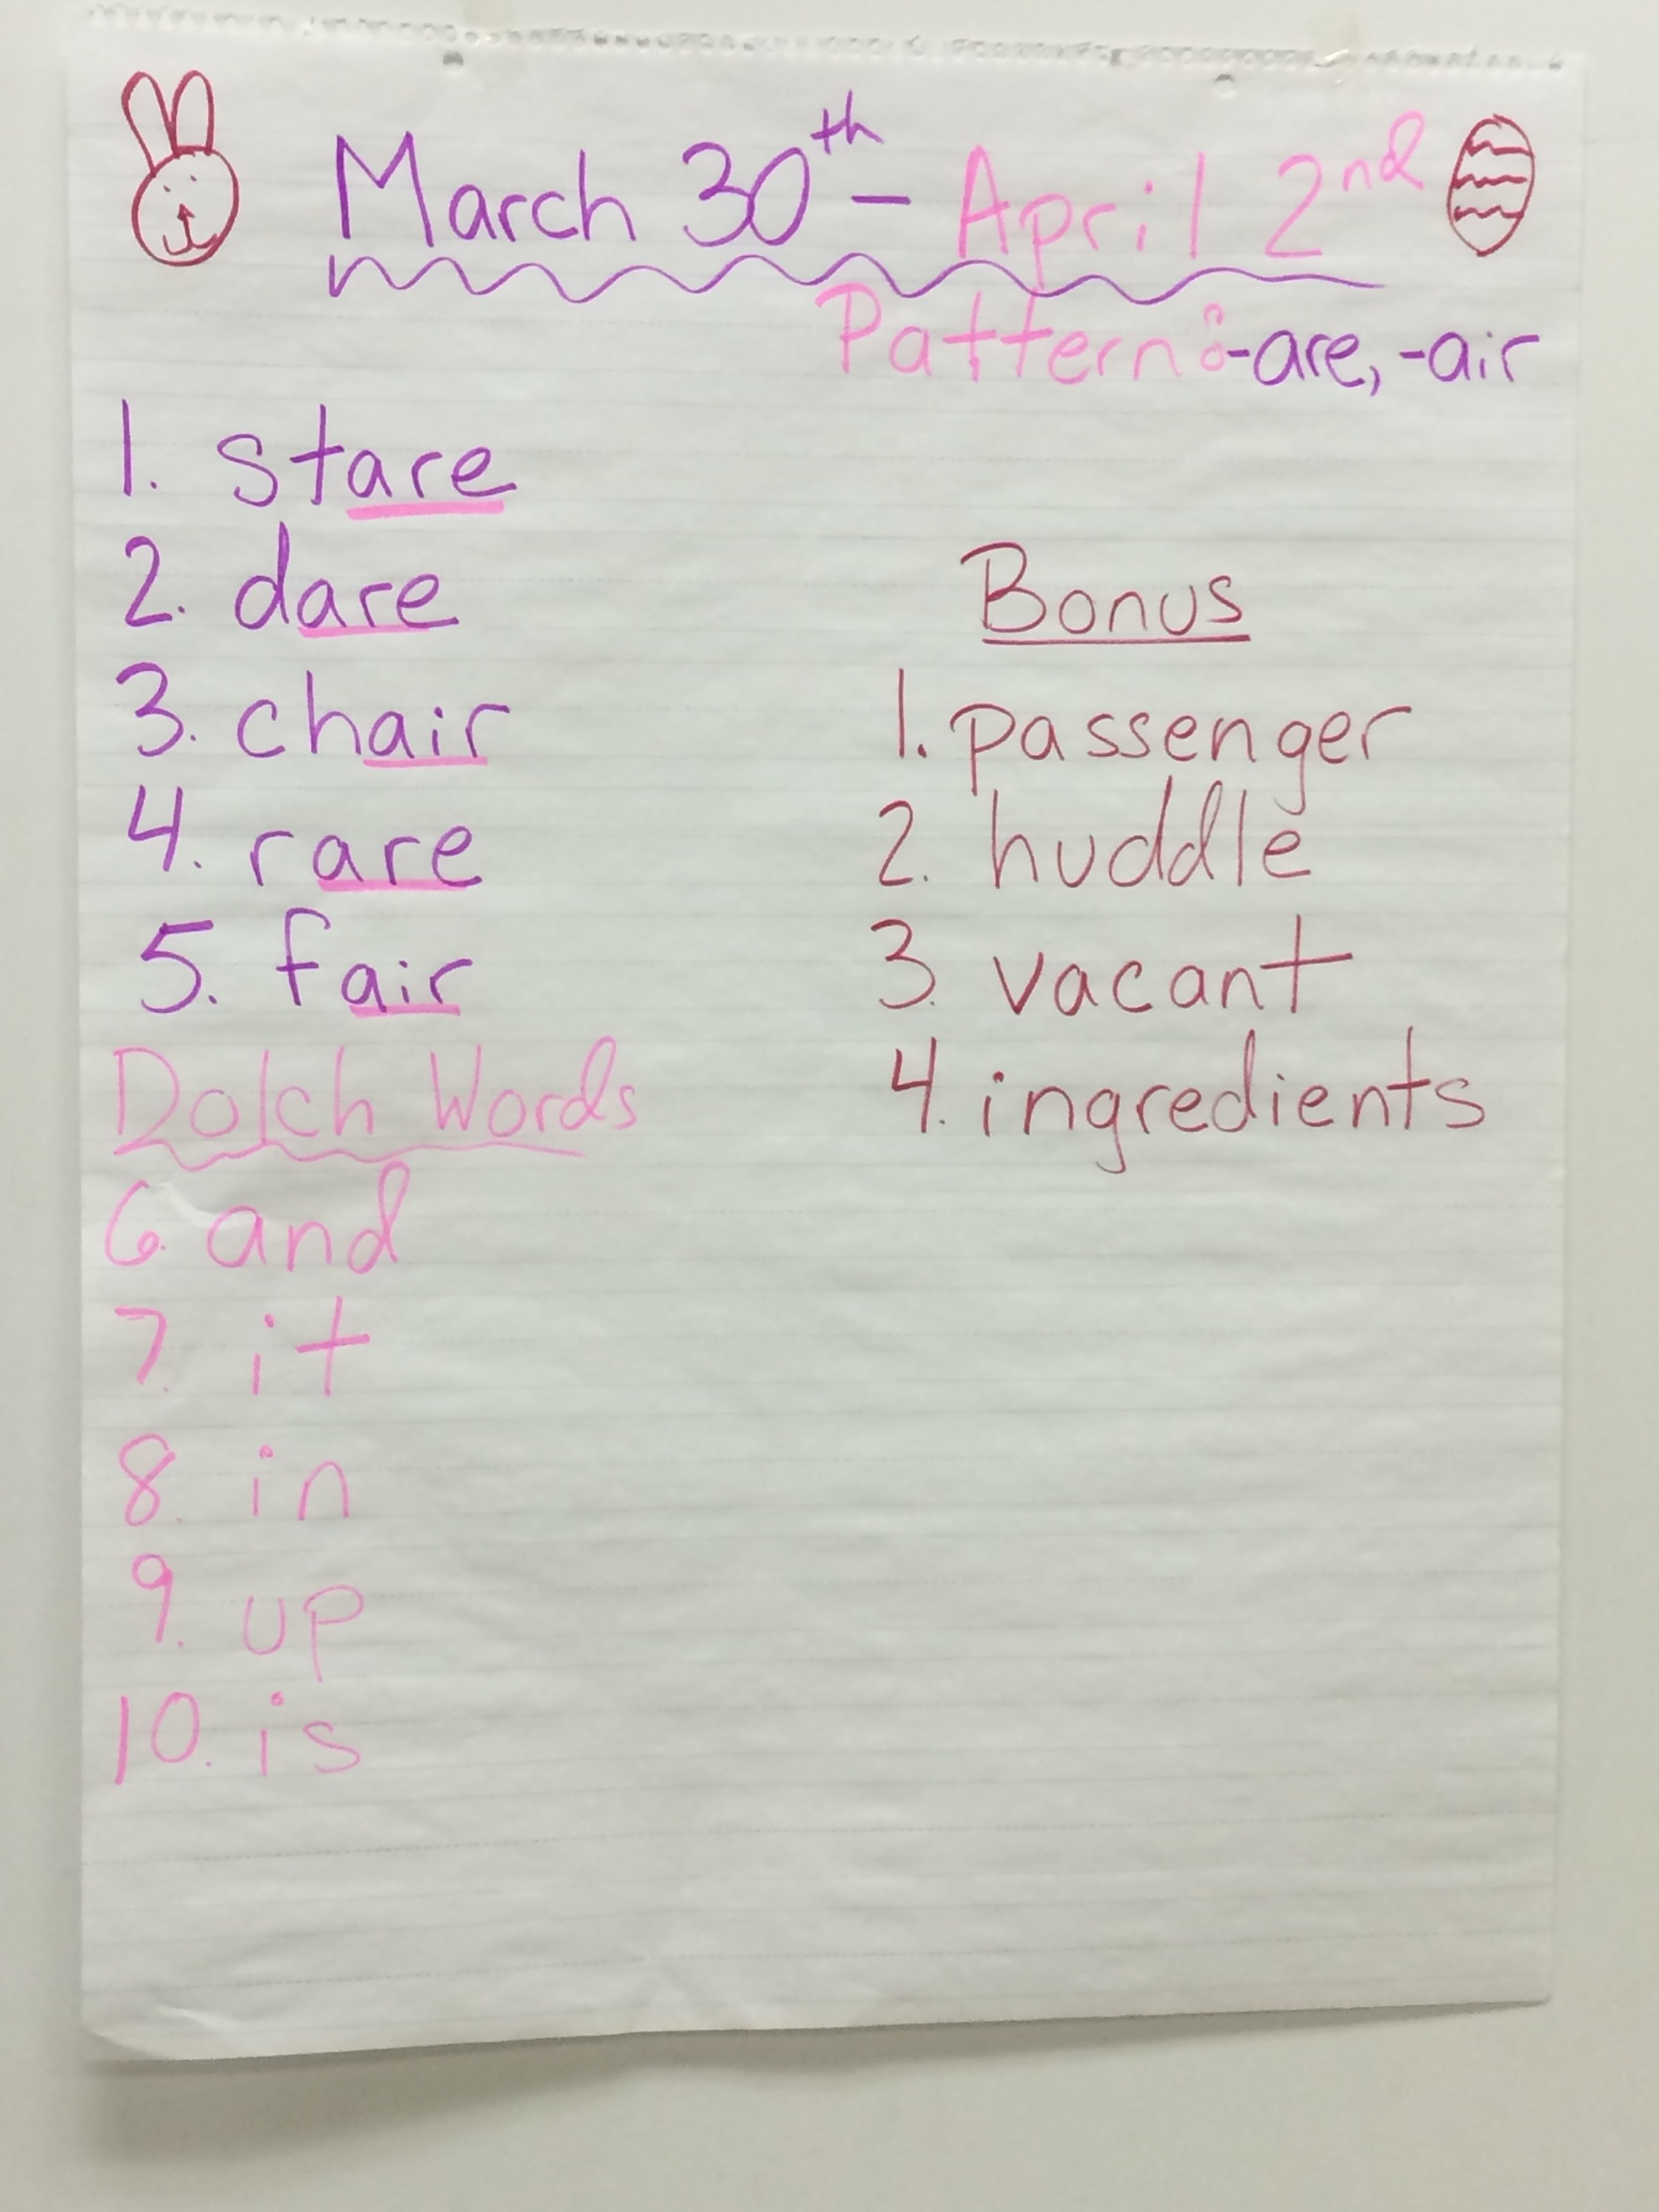 March 30th - April 2nd
Pattern: -are, -air
1. stare
2. dare
3. chair
4. rare
5. fair
Dolch Words
6. and
7. it
8. in
9. up
10. is
Bonus
1. passenger
2. huddle
3. vacant
4. ingredients